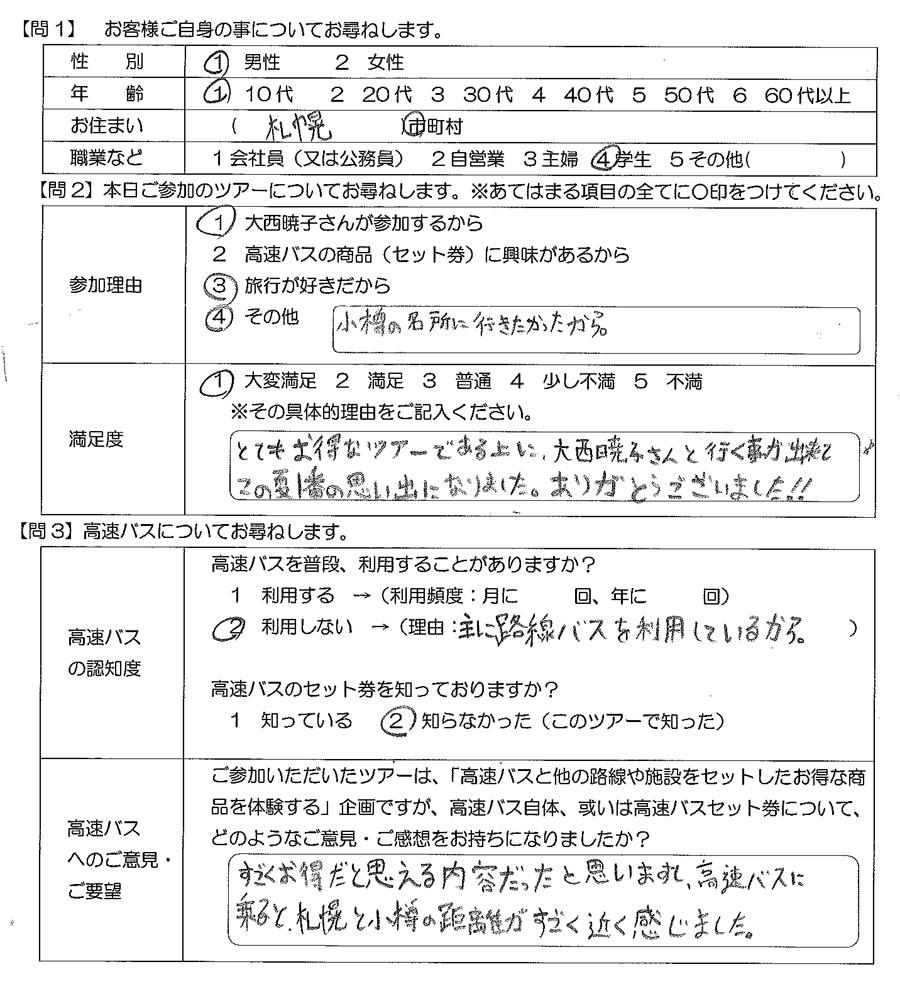 【問１】　お客様ご自身の事についてお尋ねします。
性　別　① 男性　２ 女性
年　齢　① １０代　２ ２０代　３ ３０代　４ ４０代　５ ５０代　６ ６０代以上
お住まい　（　札幌　）市町村
職業など　１会社員（又は公務員）　２自営業　３主婦　④学生　５その他(　　　)
【問２】本日ご参加のツアーについてお尋ねします。※あてはまる項目の全てに〇印をつけてください。
参加理由
① 大西暁子さんが参加するから
２ 高速バスの商品（セット券）に興味があるから
③ 旅行が好きだから
④ その他　小樽の名所に行きたかったから。
満足度
① 大変満足　２ 満足　３ 普通　４ 少し不満　５ 不満
※その具体的理由をご記入ください。
とてもお得なツアーである上に、大西暁子さんと行く事が出来て
この夏1番の思い出になりました。ありがとうございました!!
【問３】高速バスについてお尋ねします。
高速バス
の認知度
高速バスを普段、利用することがありますか？
１ 利用する　→（利用頻度：月に　　回、年に　　回）
② 利用しない　→（理由：主に路線バスを利用しているから。　）
高速バスのセット券を知っておりますか？
１ 知っている　② 知らなかった（このツアーで知った）
高速バス
へのご意見・
ご要望
ご参加いただいたツアーは、「高速バスと他の路線や施設をセットしたお得な商
品を体験する」企画ですが、高速バス自体、或いは高速バスセット券について、
どのようなご意見・ご感想をお持ちになりましたか？
すごくお得だと思える内容だったと思いますし、高速バスに
乗ると、札幌と小樽の距離がすごく近く感じました。